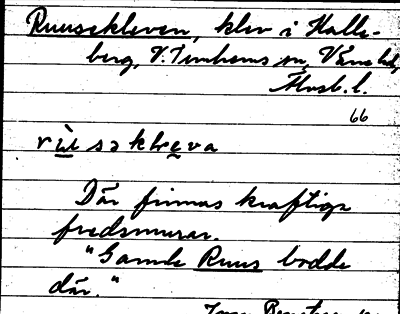 Ruusekleven, klev i Halle-
berg, V. Tunhems sn, Väne hd,
Älvsb. l.
66
rùsəkleva
Där finnas kraftiga
fredsmurar.
"Gamle Ruus bodde
där."